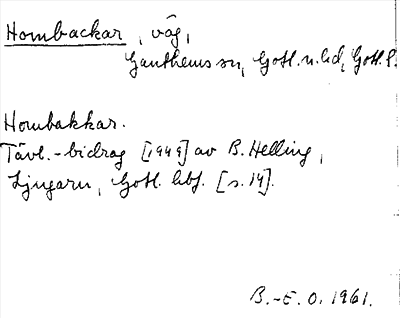 Hombackar, väg,
Ganthems sn, Gotl. n. hd, Gotl. l.
Hombakkar.
Tävl.-bidrag [1949] av B. Helling,
Ljugarn, Gotl. hbf. [s. 14].
B.-E. O. 1961.